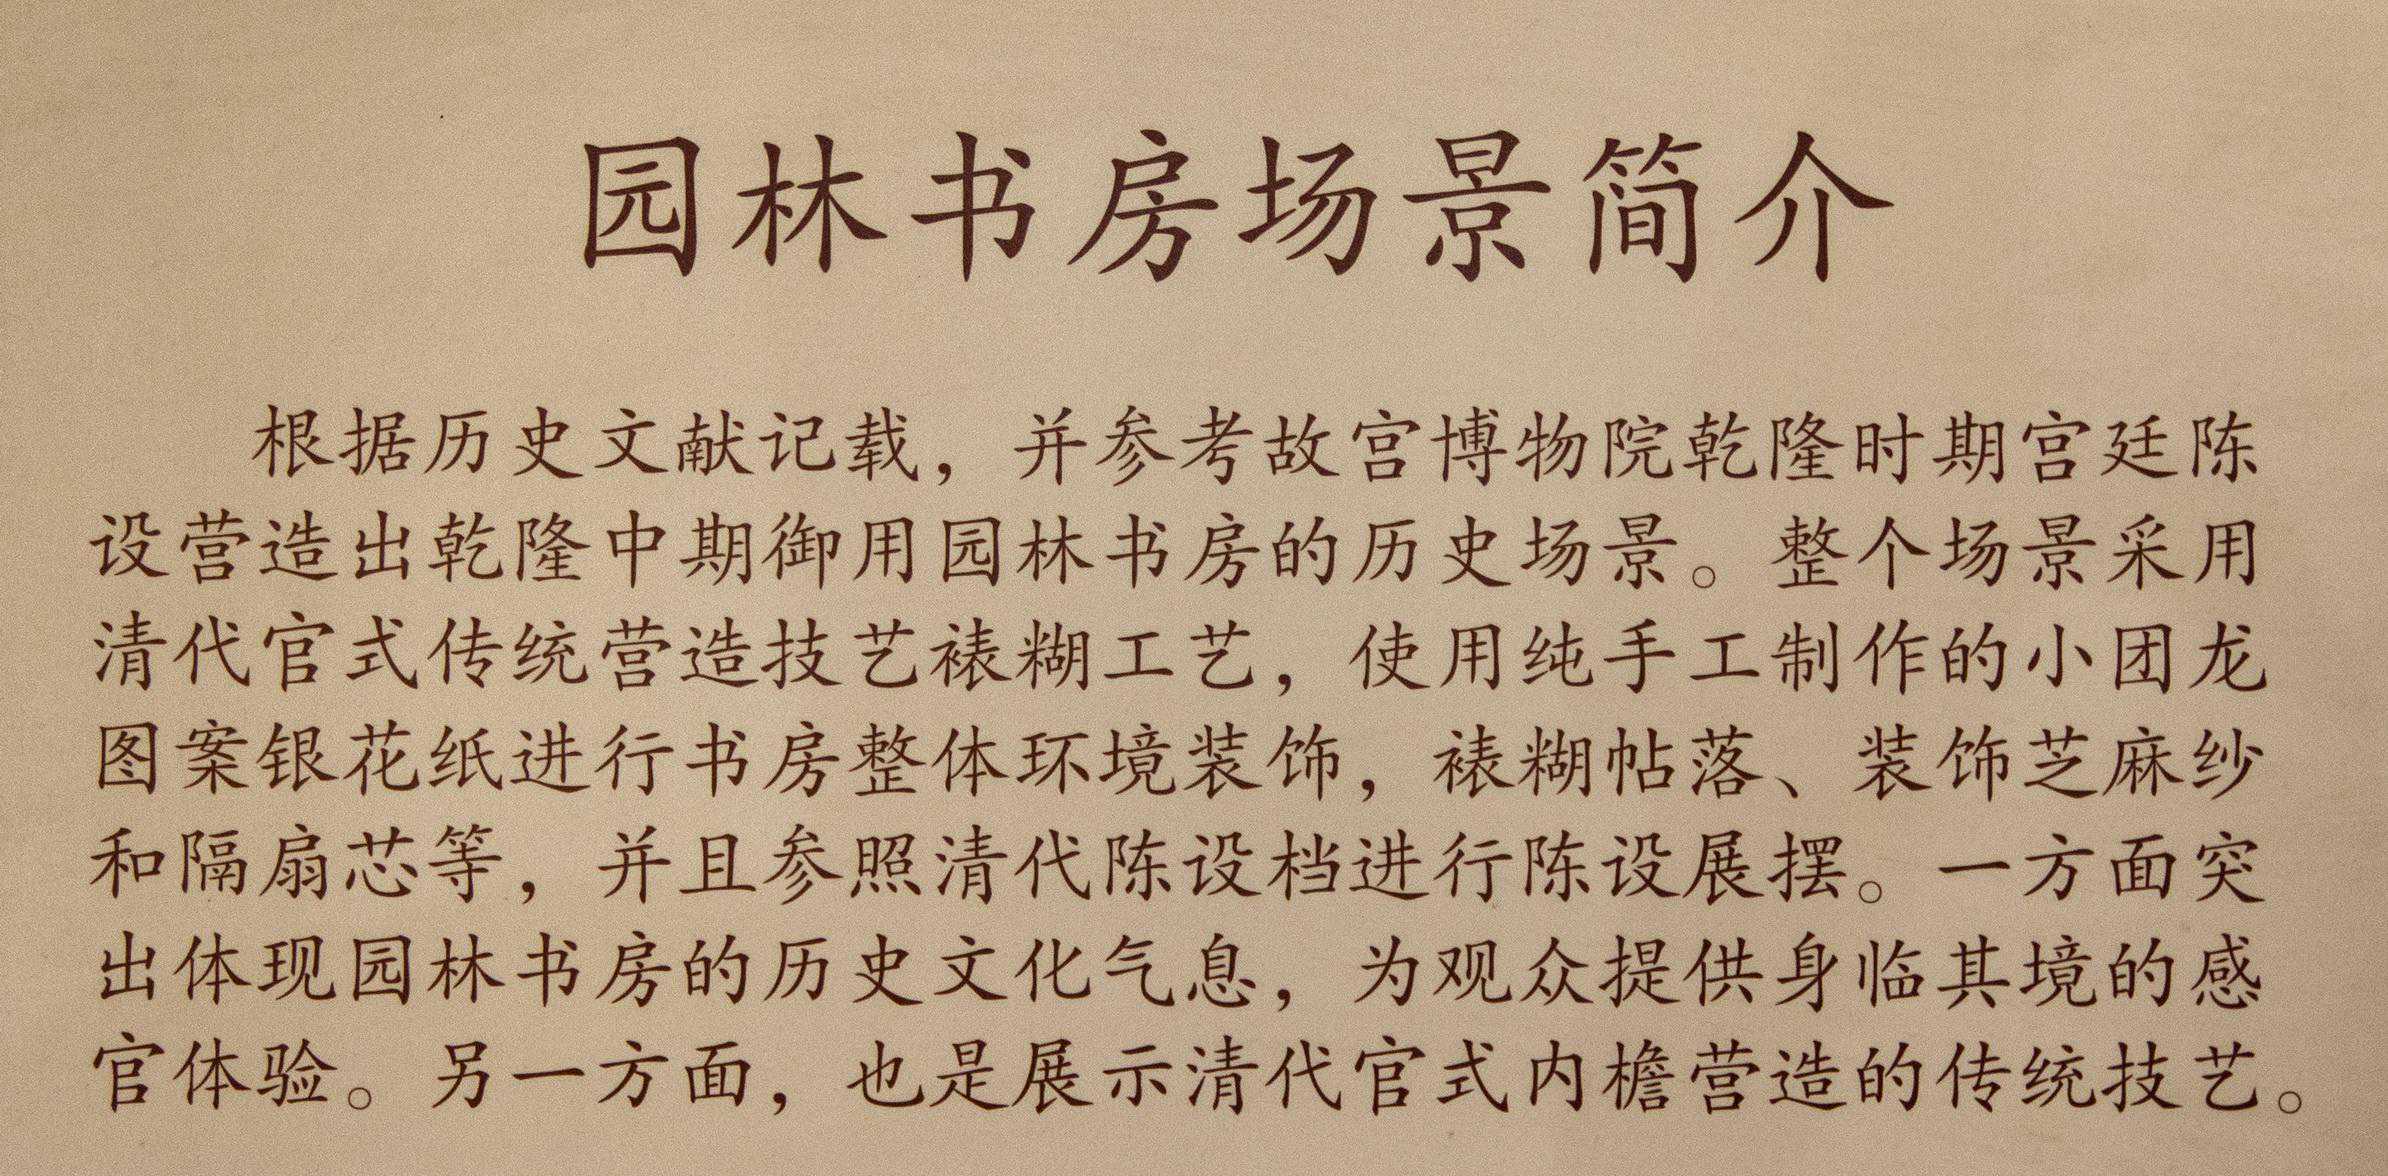 园林书房场景简介
根据历史文献记载，并参考故宫博物院乾隆时期宫廷陈
设营造出乾隆中期御用园林书房的历史场景。整个场景采用
清代官式传统营造技艺裱糊工艺，使用纯手工制作的小团龙
图案银花纸进行书房整体环境装饰，裱糊帖落、装饰芝麻纱
和隔扇芯等，并且参照清代陈设档进行陈设展摆。一方面突
出体现园林书房的历史文化气息，为观众提供身临其境的感
官体验。另一方面，也是展示清代官式内檐营造的传统技艺。